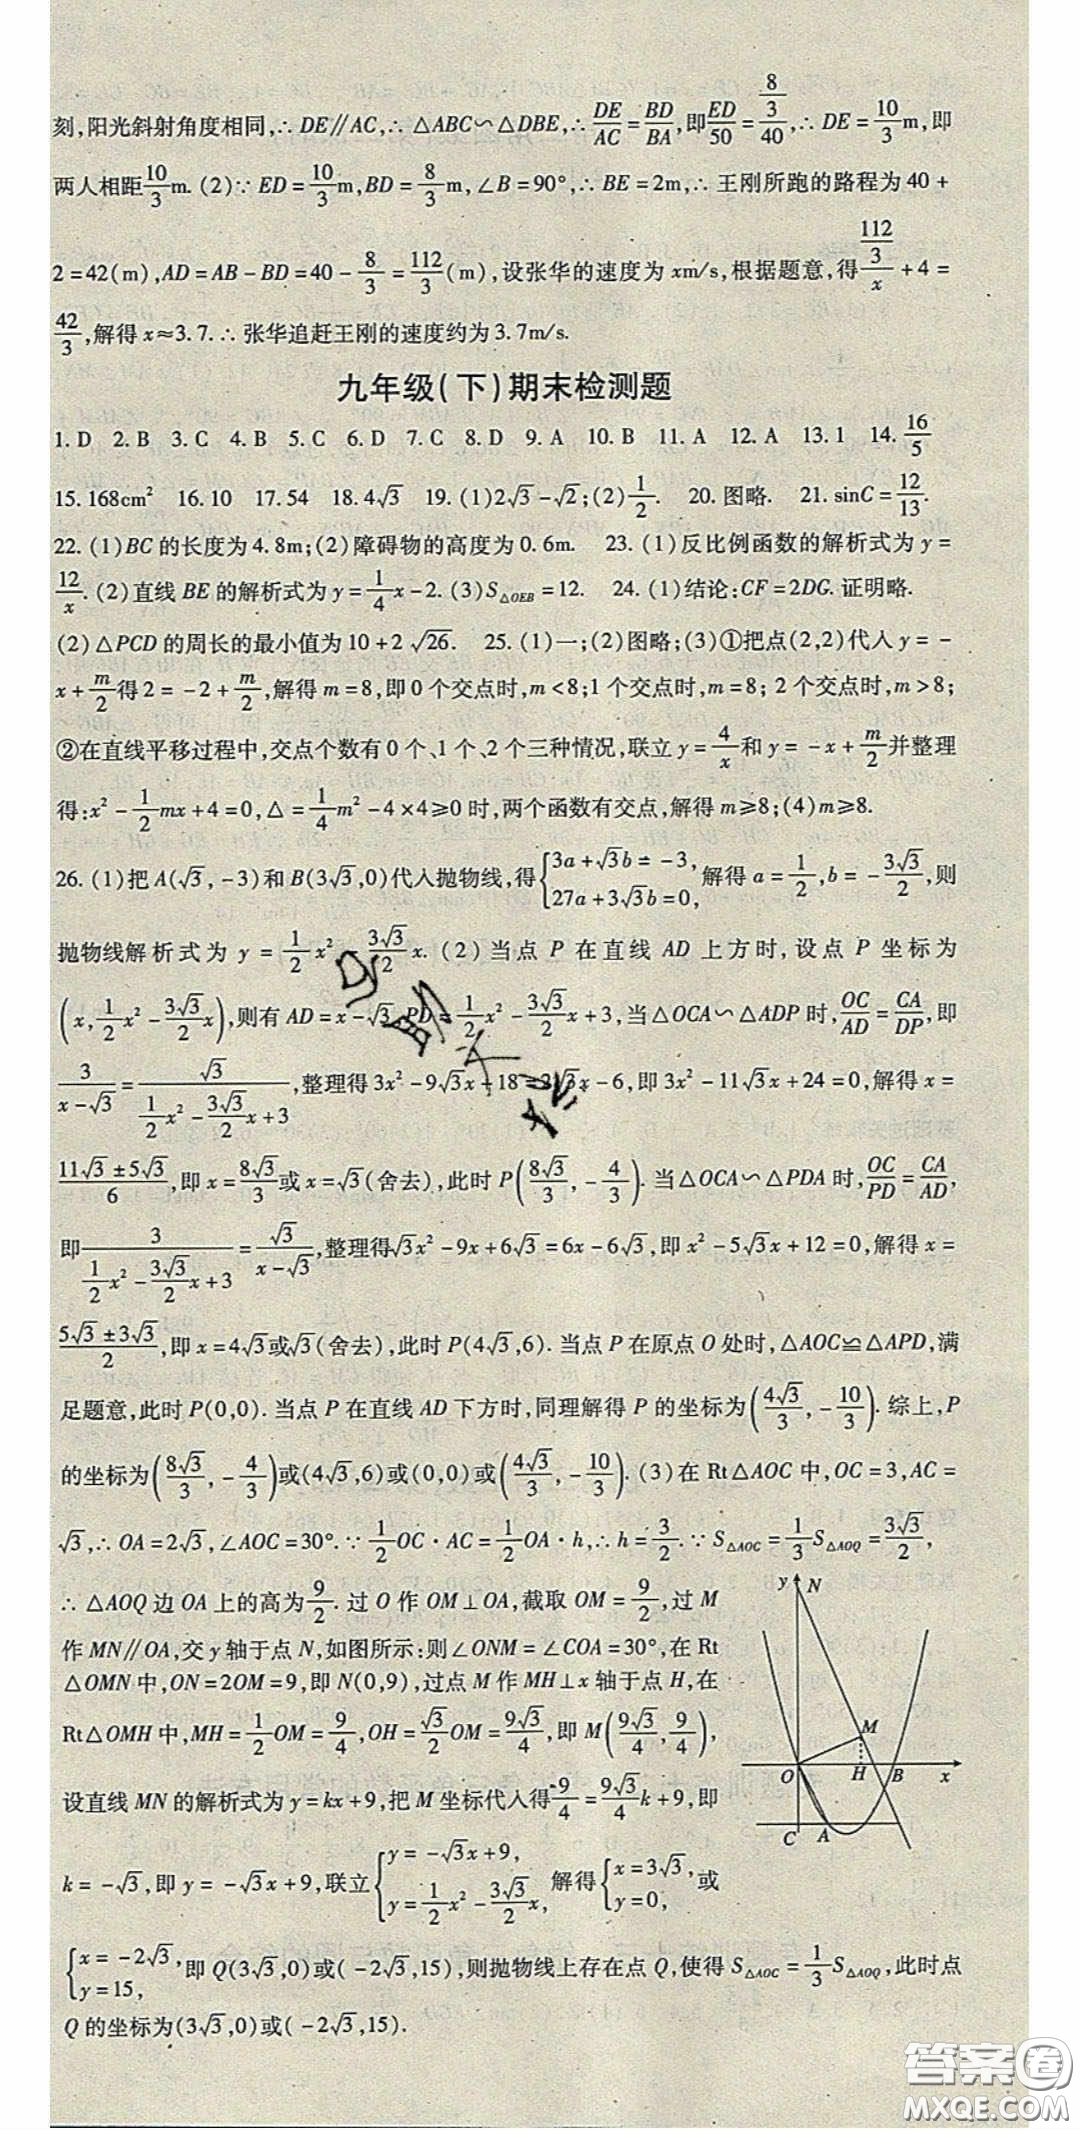 刻,阳光斜射角度相同,∴DE∥AC,∴△ABC∽△DBE,∴DE/AC=BD/BA,即ED/50=(8/3)/40,∴DE=10/3m,即
两人相距10/3m.(2)∵ED=10/3m,BD=8/3m,∠B=90°,∴BE=2m,∴王刚所跑的路程为40+
2=42(m),AD=AB-BD=40-8/3=112/3(m),设张华的速度为xm/s,根据题意,得(112/3)/x+4=
42/3,解得x≈3.7.∴张华追赶王刚的速度约为3.7m/s.
九年级(下)期末检测题
1.D 2.B 3.C 4.B 5.C 6.D 7.C 8.D 9.A 10.B 11.A 12.A 13.1 14.16/5
15.168cm² 16.10 17.54 18.4√3 19.(1)2√3-√2;(2)1/2. 20.图略. 21.sinC=12/13.
22.(1)BC的长度为4.8m;(2)障碍物的高度为0.6m. 23.(1)反比例函数的解析式为y=
12/x.(2)直线BE的解析式为y=1/4x-2.(3)S△OEB=12. 24.(1)结论:CF=2DG.证明略.
(2)△PCD的周长的最小值为10+2√26. 25.(1)一;(2)图略;(3)①把点(2,2)代入y=-
x+m/2得2=-2+m/2,解得m=8,即0个交点时,m<8;1个交点时,m=8;2个交点时,m>8;
②在直线平移过程中,交点个数有0个、1个、2个三种情况,联立y=4/x和y=-x+m/2并整理
得:x²-1/2mx+4=0,△=1/4m²-4×4≥0时,两个函数有交点,解得m≥8;(4)m≥8.
26.(1)把A(√3,-3)和B(3√3,0)代入抛物线,得{3a+√3b=-3, 27a+3√3b=0, 解得a=1/2,b=-3√3/2,则
抛物线解析式为y=1/2x²-3√3/2x.(2)当点P在直线AD上方时,设点P坐标为
(x,1/2x²-3√3/2x),则有AD=x-√3,PD=1/2x²-3√3/2x+3,当△OCA∽△ADP时,OC/AD=CA/DP,即
3/(x-√3)=√3/(1/2x²-3√3/2x+3),整理得3x²-9√3x+18=2√3x-6,即3x²-11√3x+24=0,解得x=
(11√3±5√3)/6,即x=8√3/3或x=√3(舍去),此时P(8√3/3,-4/3).当△OCA∽△PDA时,OC/PD=CA/AD,
即3/(1/2x²-3√3/2x+3)=√3/(x-√3),整理得√3x²-9x+6√3=6x-6√3,即x²-5√3x+12=0,解得x=
(5√3±3√3)/2,即x=4√3或√3(舍去),此时P(4√3,6).当点P在原点O处时,△AOC≌△APD,满
足题意,此时P(0,0).当点P在直线AD下方时,同理解得P的坐标为(4√3/3,-10/3).综上,P
的坐标为(8√3/3,-4/3)或(4√3,6)或(0,0)或(4√3/3,-10/3).(3)在Rt△AOC中,OC=3,AC=
√3,∴OA=2√3,∠AOC=30°.∵1/2OC·AC=1/2OA·h,∴h=3/2.∵S△AOC=1/3S△AOQ=3√3/2,
∴△AOQ边OA上的高为9/2.过O作OM⊥OA,截取OM=9/2,过M
作MN∥OA,交y轴于点N,如图所示:则∠ONM=∠COA=30°,在Rt
△OMN中,ON=2OM=9,即N(0,9),过点M作MH⊥x轴于点H,在
Rt△OMH中,MH=1/2OM=9/4,OH=√3/2OM=9√3/4,即M(9√3/4,9/4),
设直线MN的解析式为y=kx+9,把M坐标代入得9/4=9√3/4k+9,即
k=-√3,即y=-√3x+9,联立{y=-√3x+9, y=1/2x²-3√3/2x, 解得{x=3√3, y=0, 或
{x=-2√3, y=15, 即Q(3√3,0)或(-2√3,15),则抛物线上存在点Q,使得S△AOC=1/3S△AOQ,此时点
Q的坐标为(3√3,0)或(-2√3,15).
y N
M
O H B x
C A
答案圈
MXQE.COM